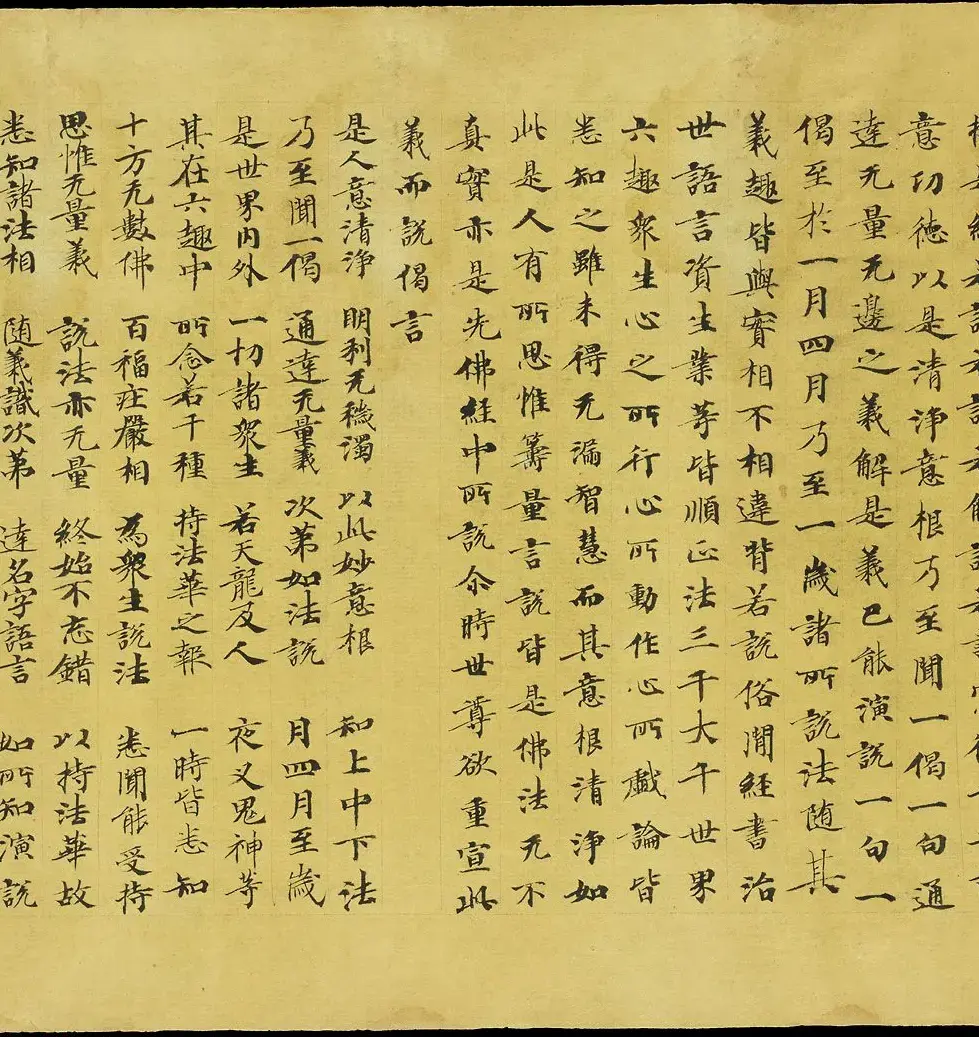 意功德以是清淨意根乃至聞一偈一句通
達无量无邊之義解是義已能演說一句一
偈至於一月四月乃至一歲諸所說法随其
義趣皆與實相不相違背若說俗間經書治
世語言資生業等皆順正法三千大千世界
六趣衆生心之所行心所動作心所戲論皆
悉知之雖未得无漏智慧而其意根清淨如
此是人有所思惟籌量言說皆是佛法无不
真實亦是先佛經中所說尒時世尊欲重宣此
義而說偈言
是人意清淨 明利无穢濁 以此妙意根 知上中下法
乃至聞一偈 通達无量義 次第如法說 月四月至歲
是世界内外 一切諸衆生 若天龍及人 夜叉鬼神等
其在六趣中 所念若干種 持法華之報 一時皆悉知
十方无數佛 百福莊嚴相 為衆生說法 悉聞能受持
思惟无量義 說法亦无量 終始不忘錯 以持法華故
悉知諸法相 随義識次第 達名字語言 如所知演說